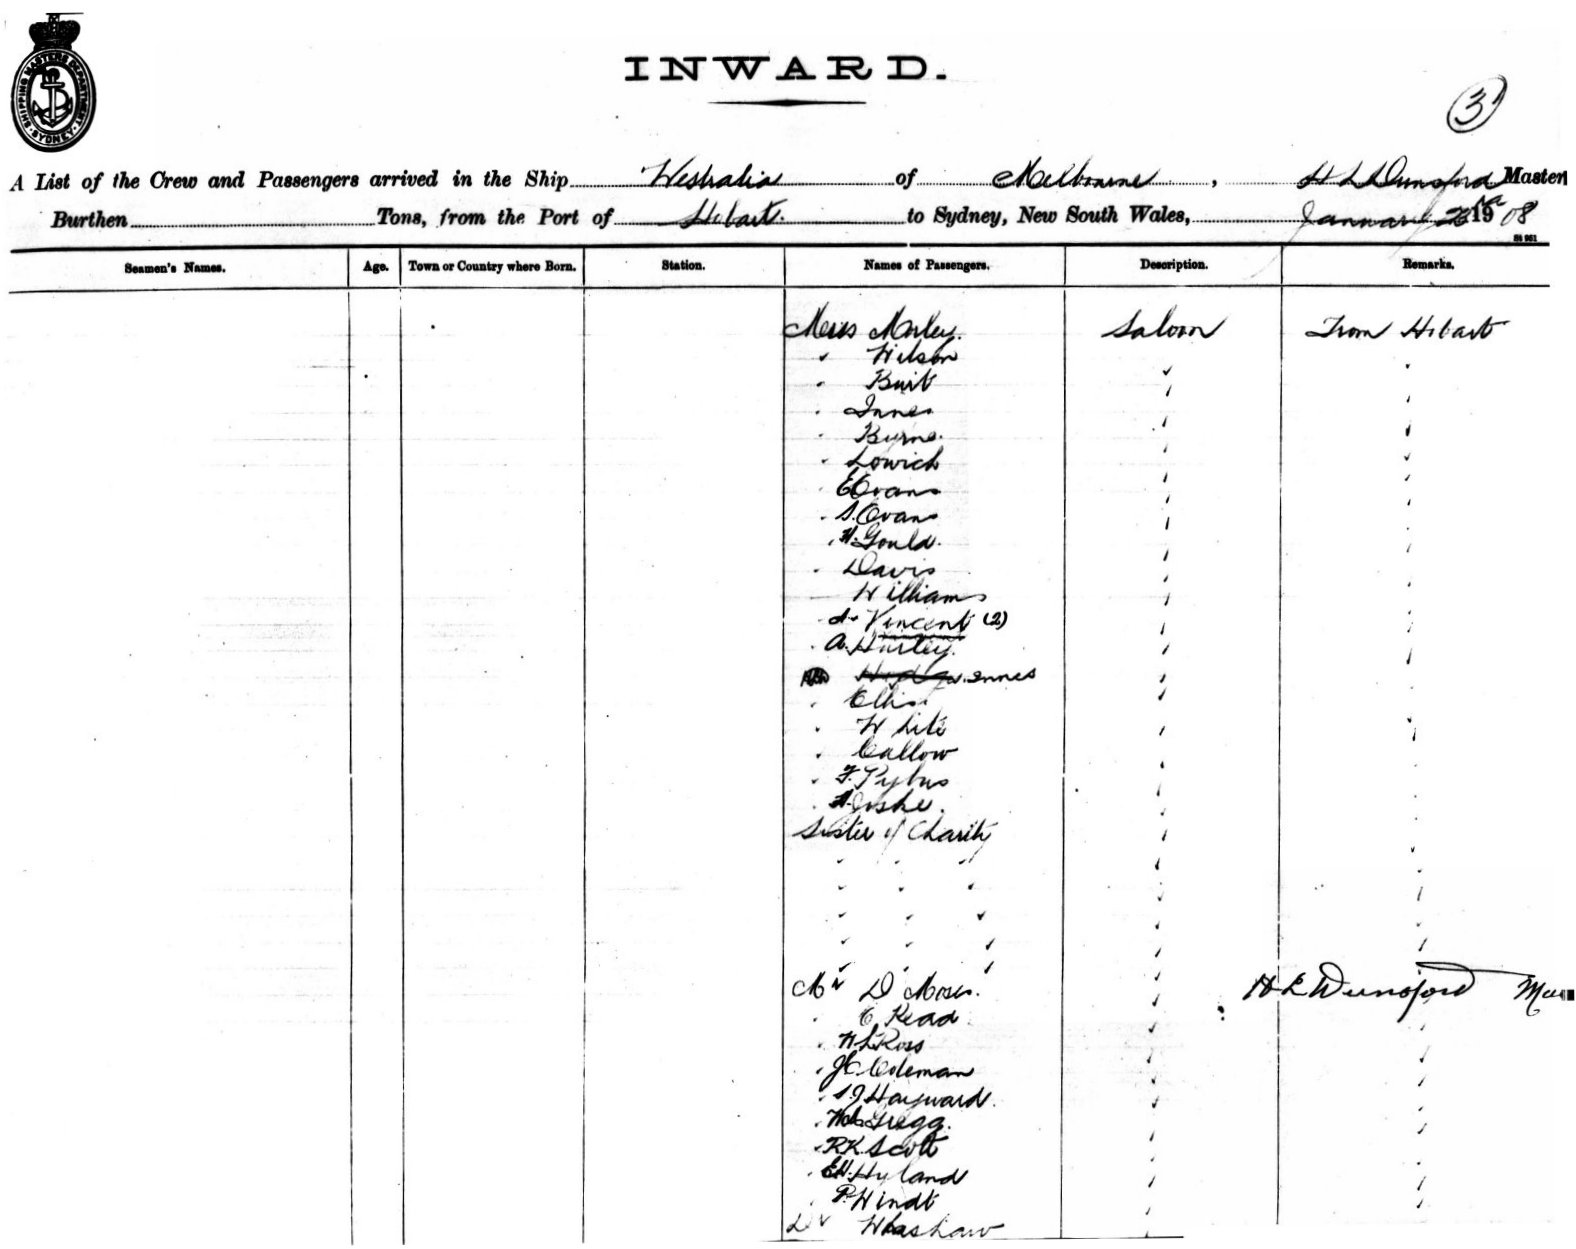 SHIPPING MASTERS DEPARTMENT
SYDNEY
INWARD.
3
A List of the Crew and Passengers arrived in the Ship Westralia of Melbourne, H L Dunsford Master
Burthen Tons, from the Port of Hobart. to Sydney, New South Wales, January 1908
Seamen's Names. Age. Town or Country where Born. Station. Names of Passengers. Description. Remarks.
Miss Morley. Saloon From Hobart
" Wilson
" Burt
" Innes
" Byrne.
" Lowich
" E Evans
" S. Evans
" H. Gould.
" Davis
Williams
Vincent (2)
" A. Hurley.
W. Innes
" Ellis
" White
" Callow
" F. Pybus
" A. Joske.
Sister of Charity
" " "
" " "
" " "
" " "
" " "
Mr D Moses. H L Dunsford
" C Read
" W L Ross
" J C Coleman
" S. J Hayward.
" Gregg.
" R K. Scott
" E H. Hyland
" P. Windt
Dr Whishaw